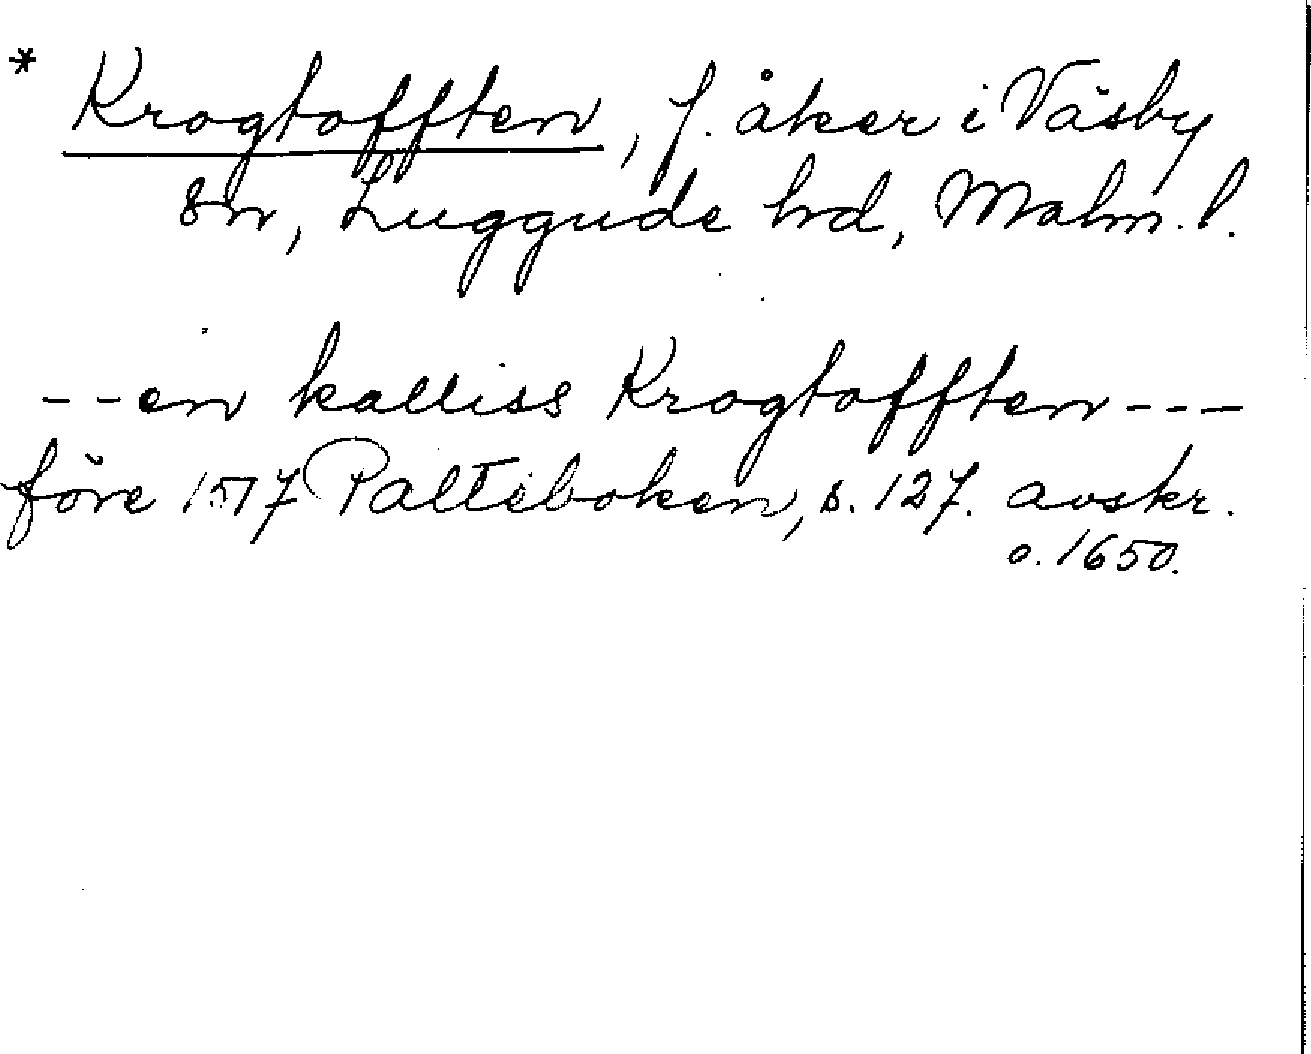 * Krogtofften, f. åker i Väsby
sn, Luggude hd, Malm. l.
--en kalliss Krogtofften---
före 1517 Palteboken, s. 127. avskr.
o. 1650.